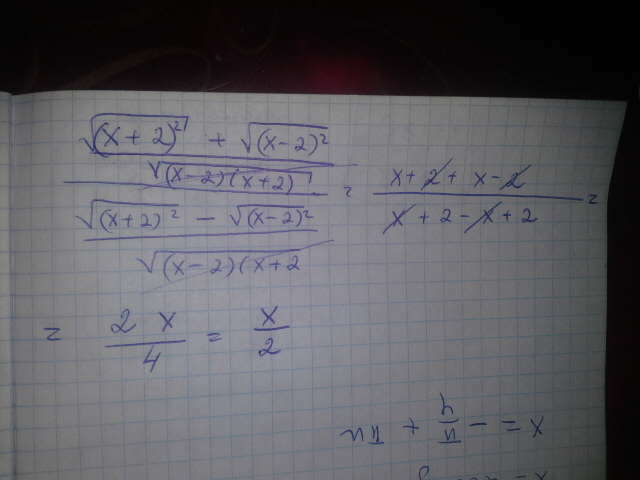 √(x+2)² + √(x-2)²
√(x-2)(x+2)
√(x+2)² - √(x-2)²
√(x-2)(x+2
= x+2+x-2 =
x+2-x+2
= 2 x = x
4 2
x = - π/4 + πn